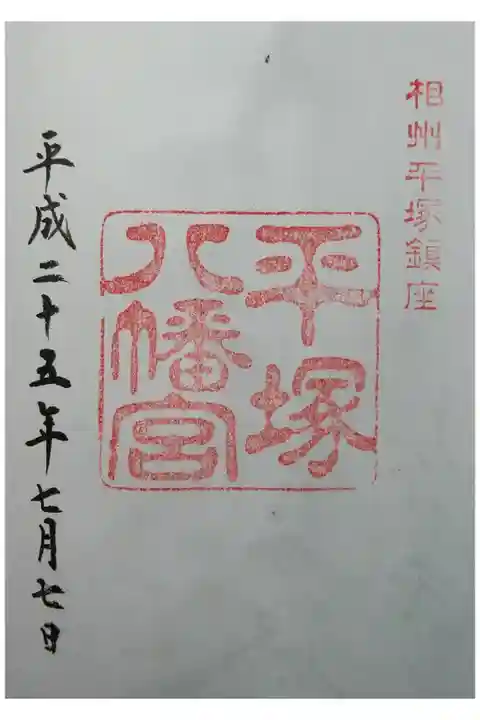 相州平塚鎮座
平塚
八幡宮
平成二十五年七月七日